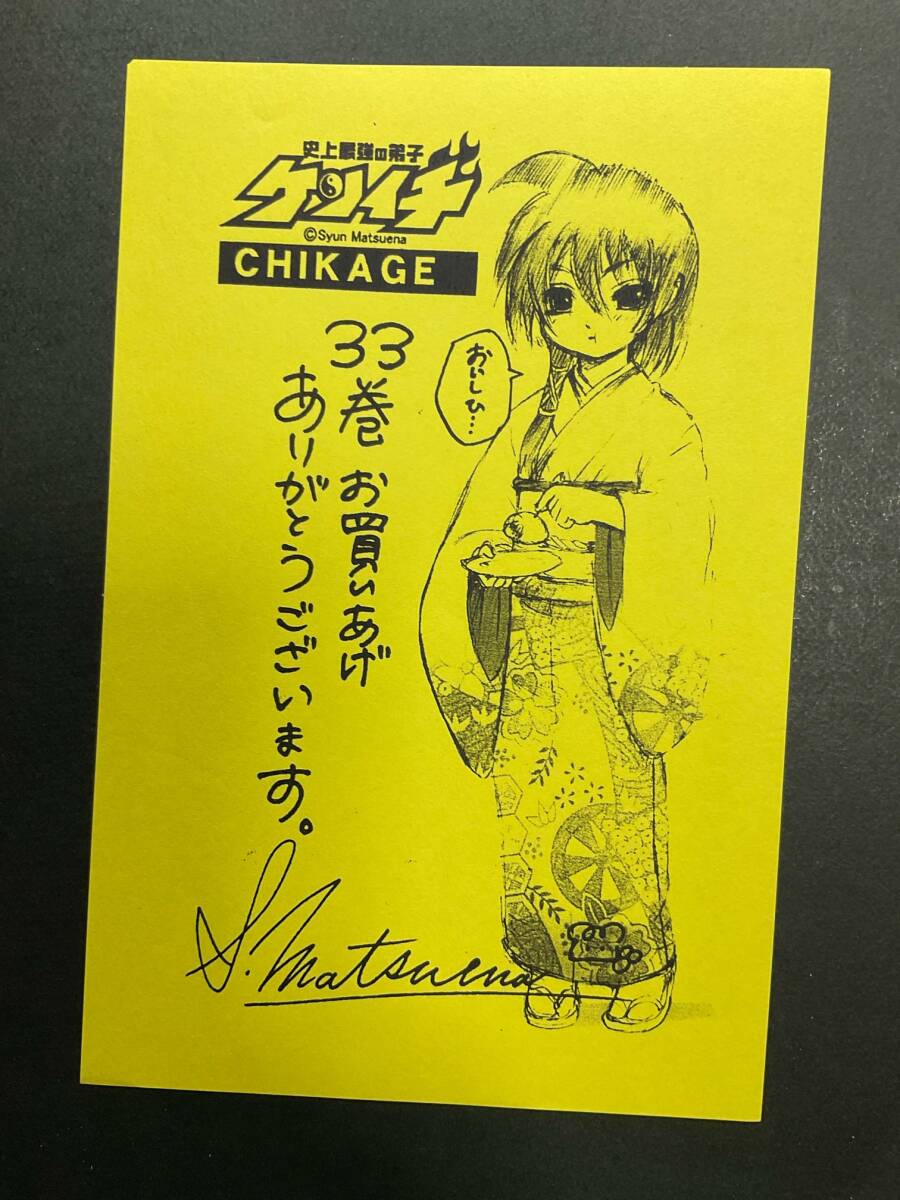 史上最強の弟子
ケンイチ
©Syun Matsuena
CHIKAGE
33巻 お買いあげ
ありがとうございます。
おいしひ…
S. Matsuena